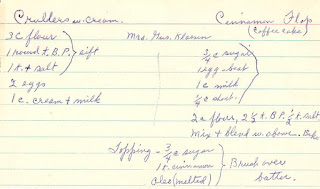 Crullers w. cream.
3 C flour
1 round t. B.P.
1 t. salt
sift
2 eggs
1 c. cream + milk
Mrs. Gus.
Cinnamon Flop
(Coffee cake)
3/4 c sugar
1 egg - beat
1 c milk
1/4 c short.
2 c flour, 2 1/2 t. B.P. 1/2 t. salt
Mix + blend w. above. Bake
Topping - 3/4 c sugar
1 t. cinnamon
Oleo (melted)
Brush over
batter.